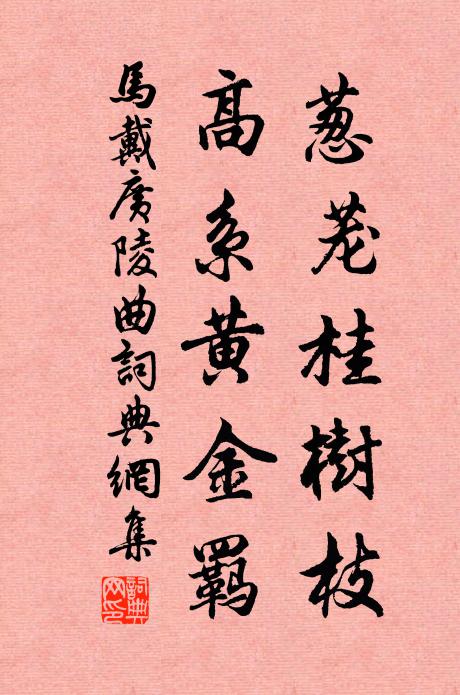 葱茏桂樹枝
高系黄金羈
馬戴廣陵曲詞典網集
詞典網印